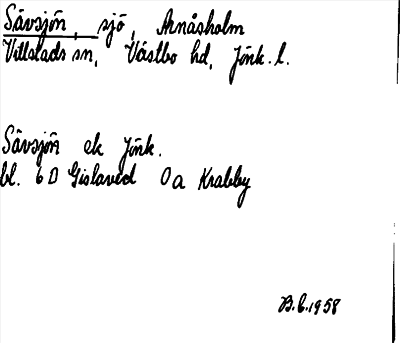 Sävsjön, sjö, Arnåsholm
Villstads sn, Västbo hd, Jönk. l.
Sävsjön ek Jönk.
bl. 6 D Gislaved 0a Krabby
B.C.1958